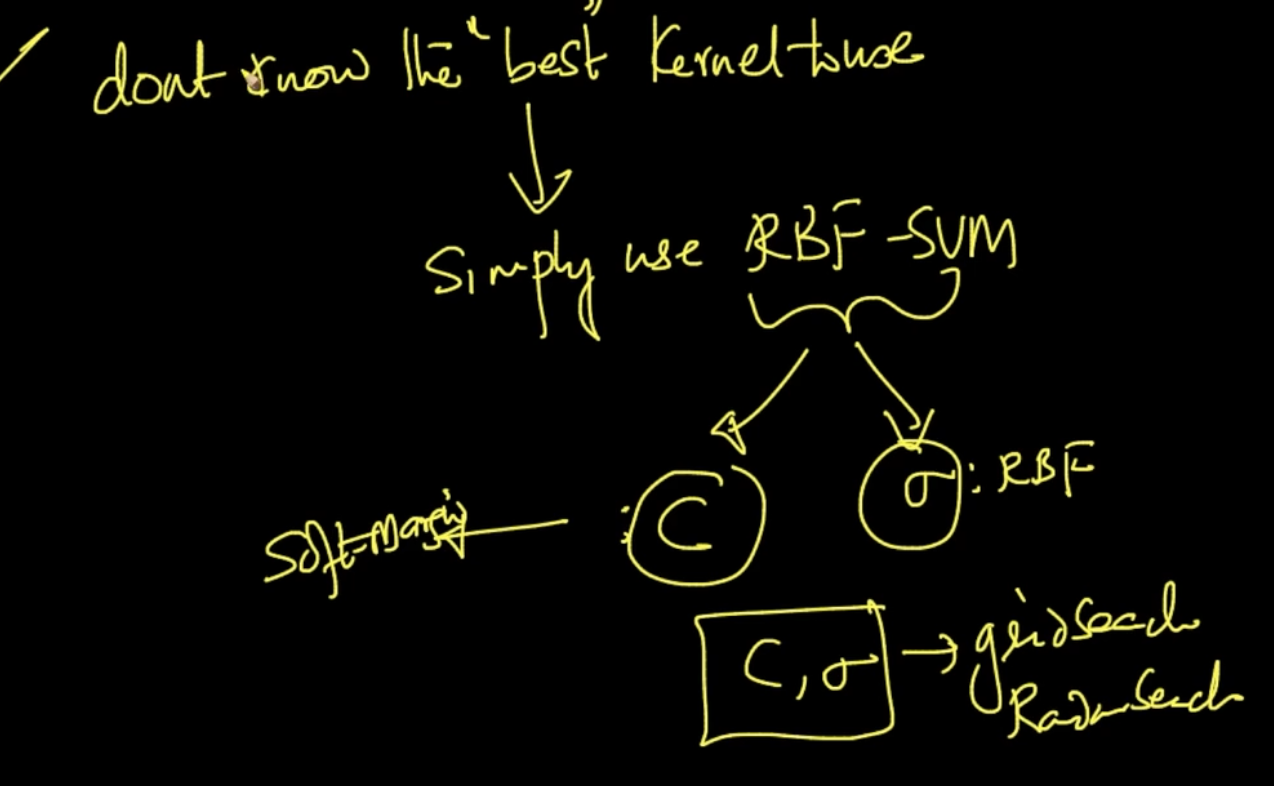 dont know the "best" Kernel to use
Simply use RBF-SVM
Soft-Margin
: C
σ : RBF
C, σ → gridSeach
RandomSeach